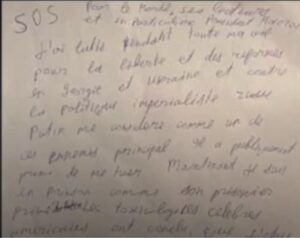 SOS
Pour le monde, ses
et en particulier President Macron
J'ai lutté pendant toute ma vie
pour la liberté et des reformes
en Georgie et Ukraine et contre
la politique imperialiste russe
Putin me considere comme un de
ces ennemis principal Il a publiquement
promi de me tuer. Maintenant je suis
en prison comme son prisonier
toxicologistes celebres
americains ont conclu, que j'etais